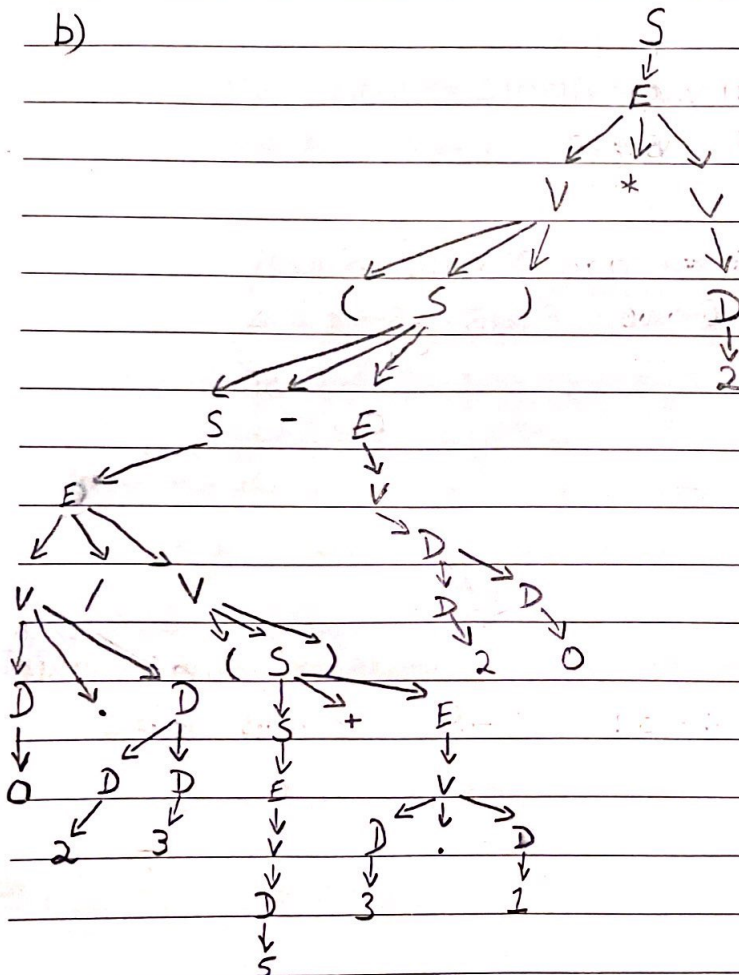 b) S
E
V * V
( S ) D
2
S - E
E V
D
V / V D D
( S ) 2 0
D . D S + E
0 D D E V
2 3 V D . D
D 3 1
5